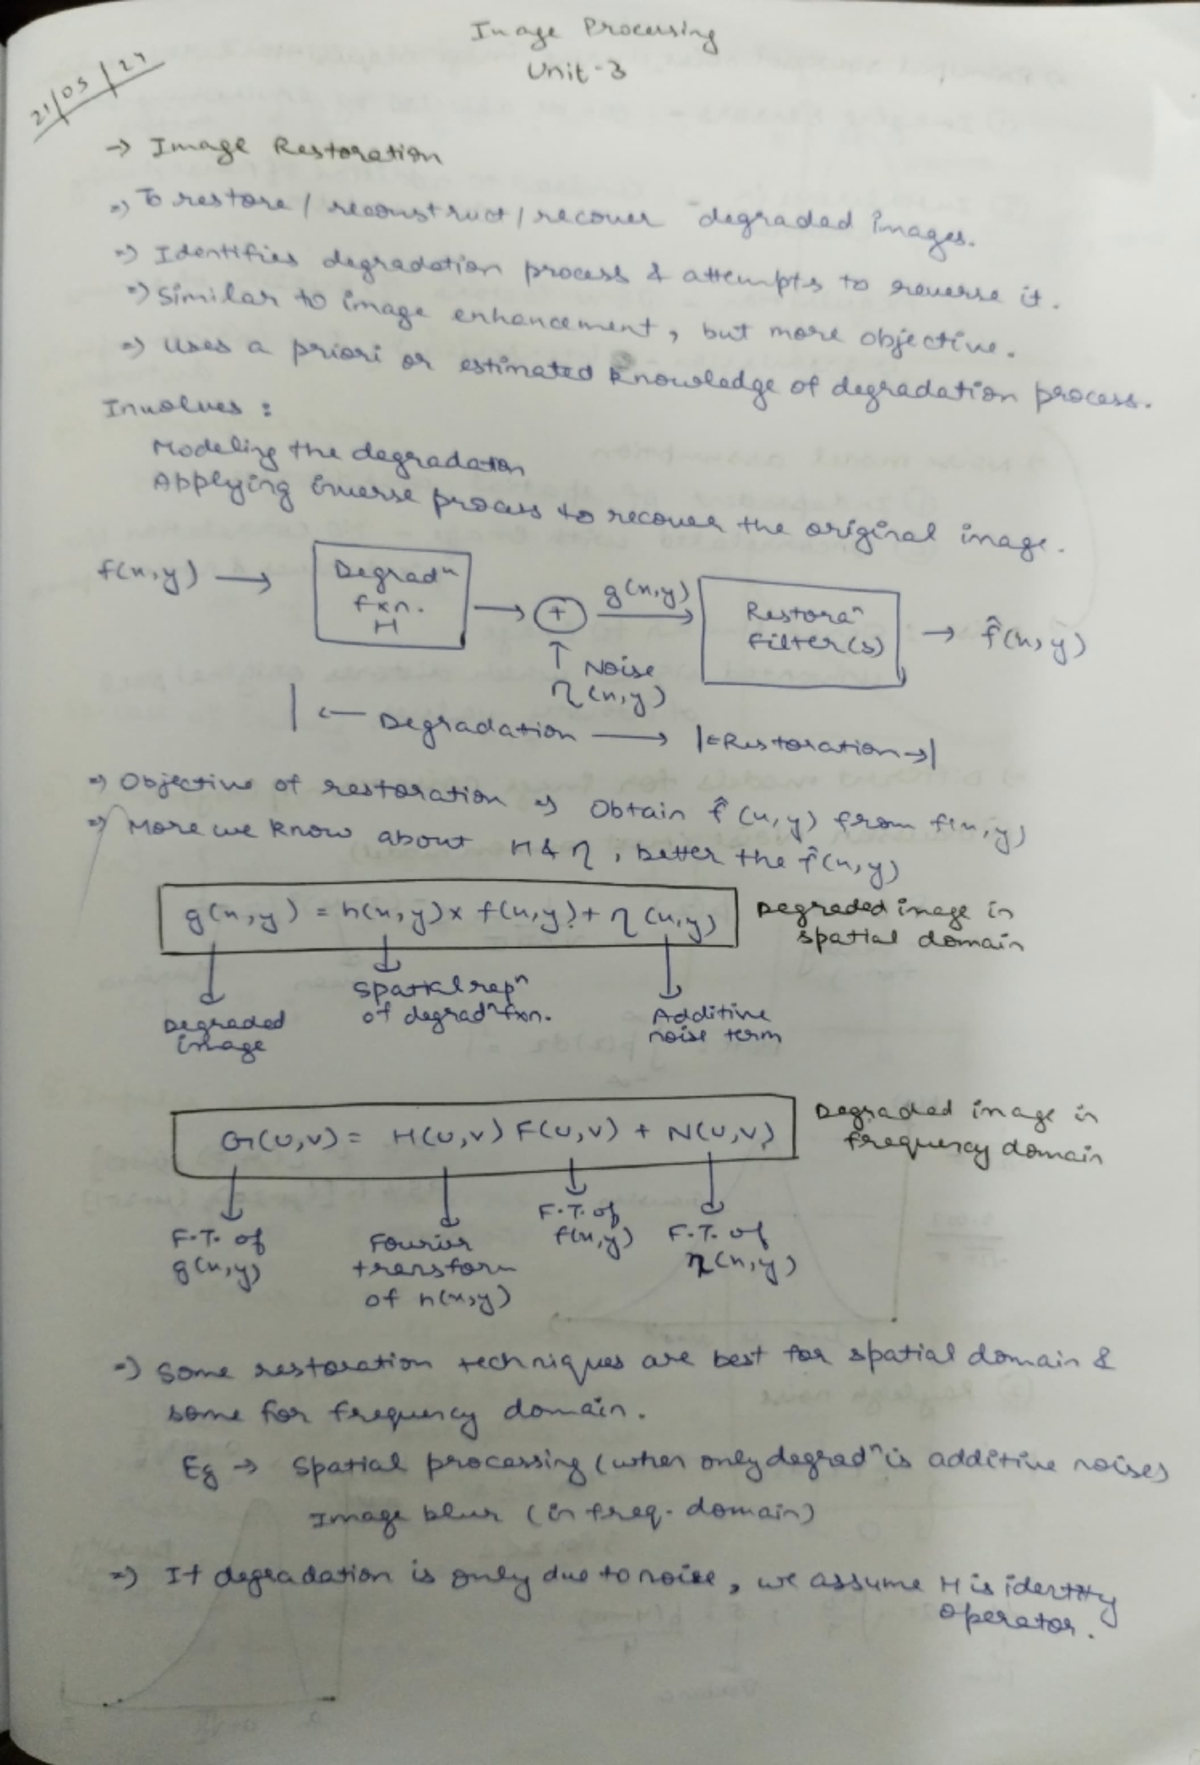 Image Processing
Unit-3
21/05/24
→ Image Restoration
⇒ To restore / reconstruct / recover degraded images.
⇒ Identifies degradation process & attempts to reverse it.
⇒ Similar to image enhancement, but more objective.
⇒ Uses a priori or estimated knowledge of degradation process.
Involves :
Modeling the degradation
Applying inverse process to recover the original image.
f(x,y) → Degradⁿ fxn. H → + g(x,y) → Restoraⁿ filter(s) → f̂(x,y)
↑ Noise
η(x,y)
| ← Degradation → | ← Restoration → |
⇒ Objective of restoration ⇒ Obtain f̂(x,y) from f(x,y)
⇒ More we know about H & η, better the f̂(x,y)
g(x,y) = h(x,y) × f(x,y) + η(x,y) Degraded image in
spatial domain
Degraded image
Spatial repⁿ of degradⁿ fxn.
Additive noise term
G(u,v) = H(u,v) F(u,v) + N(u,v) Degraded image in
frequency domain
F.T. of g(x,y)
Fourier transform of h(x,y)
F.T. of f(x,y)
F.T. of η(x,y)
⇒ Some restoration techniques are best for spatial domain &
some for frequency domain.
Eg → Spatial processing (when only degradⁿ is additive noises
Image blur (in freq. domain)
⇒ If degradation is only due to noise, we assume H is identity
operator.